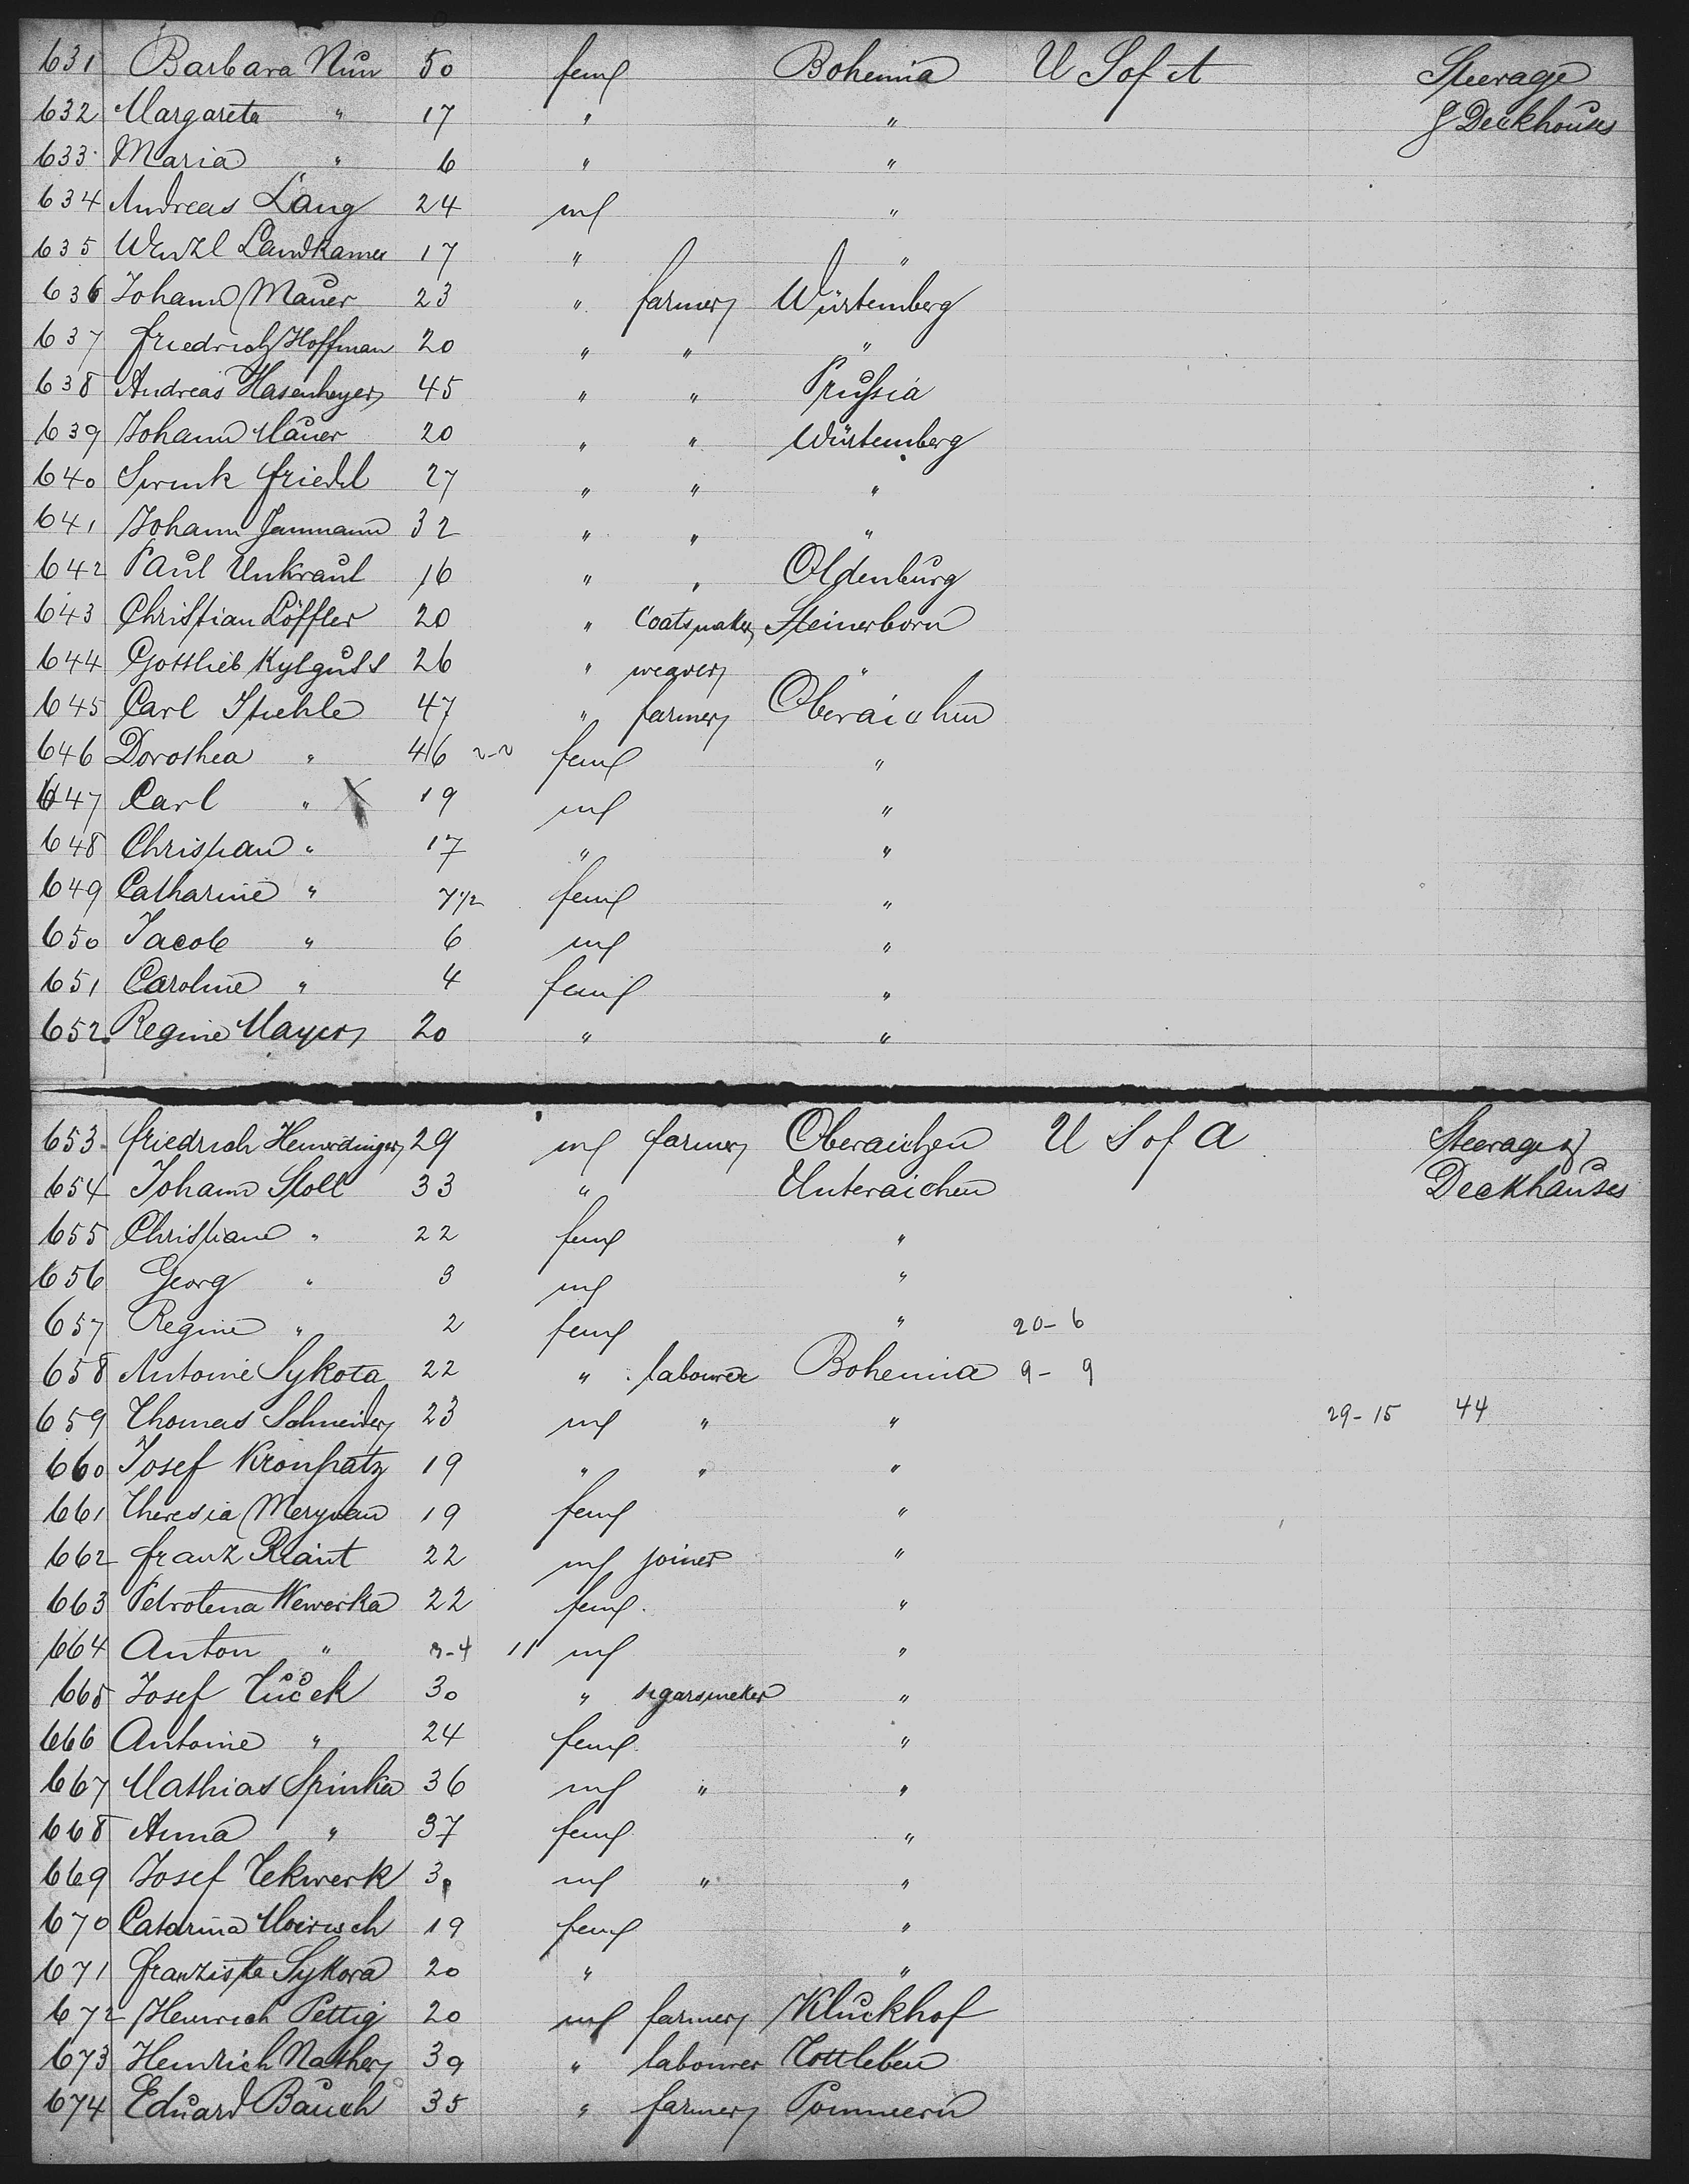 631 Barbara Nun 50 feml Bohemia U S of A Steerage
632 Margareta " 17 " " & Deckhouses
633 Maria " 6 " "
634 Andreas Lang 24 ml "
635 Wenzl Landkamer 17 " "
636 Johann Mauer 23 " farmer Würtemberg
637 Friedrich Hoffman 20 " " "
638 Andreas Hasenheyer 45 " " Prussia
639 Johann Mauer 20 " " Würtemberg
640 Friedel 27 " " "
641 Johann Jammann 32 " " "
642 Paul Unkraul 16 " " Oldenburg
643 Christian Löffler 20 " Coatsmaker Steinerborn
644 Gottlieb Kylguss 26 " weaver "
645 Carl Stiehle 47 " farmer Oberaichen
646 Dorothea " 46 feml "
647 Carl " X 19 ml "
648 Christian " 17 " "
649 Catharine " 7 1/2 feml "
650 Jacob " 6 ml "
651 Caroline " 4 feml "
652 Regine Mayer 20 " "
653 Friedrich 29 ml farmer Oberaichen U S of A Steerage &
654 Johann Stoll 33 " Unteraichen Deckhauses
655 Christiane " 22 feml "
656 Georg " 3 ml "
657 Regine " 2 feml " 20-6
658 Antonie Sykota 22 " labourer Bohemia 9-9
659 Thomas Schneider 23 ml " " 29-15 44
660 Josef Kronpatz 19 " " "
661 Theresia 19 feml "
662 Franz Raint 22 ml joiner "
663 Petrolena Wewerka 22 feml "
664 Anton " 11 ml "
665 Josef Tuček 30 " sigarsmeker "
666 Antonie " 24 feml "
667 Mathias Spinka 36 ml " "
668 Anna " 37 feml "
669 Josef Tekwerk 30 ml " "
670 Catarina 19 feml "
671 Franziska Sykora 20 " "
672 Heinrich Pettig 20 ml farmer Kluckhof
673 Heinrich Nather 39 " labourer Tottleben
674 Eduard Bauch 35 " farmer Pommern